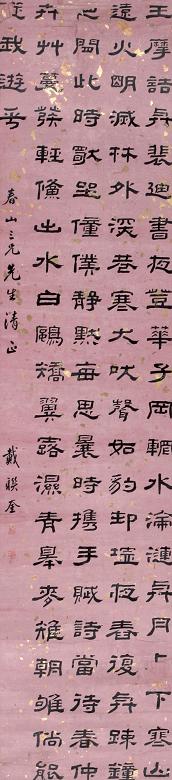 王摩詰與裴迪書夜登華子岡輞水淪漣與月上下寒山
遠火明滅林外深巷寒犬吠聲如豹邨墟夜舂復與疎鐘
間此時獨坐僮僕靜默每思曩時攜手賦詩當待春仲
卉艸蔓發輕儵出水白鷗矯翼露濕青皋麥雉朝雊倘能
從我遊乎
春山三兄先生清正
戴聯奎